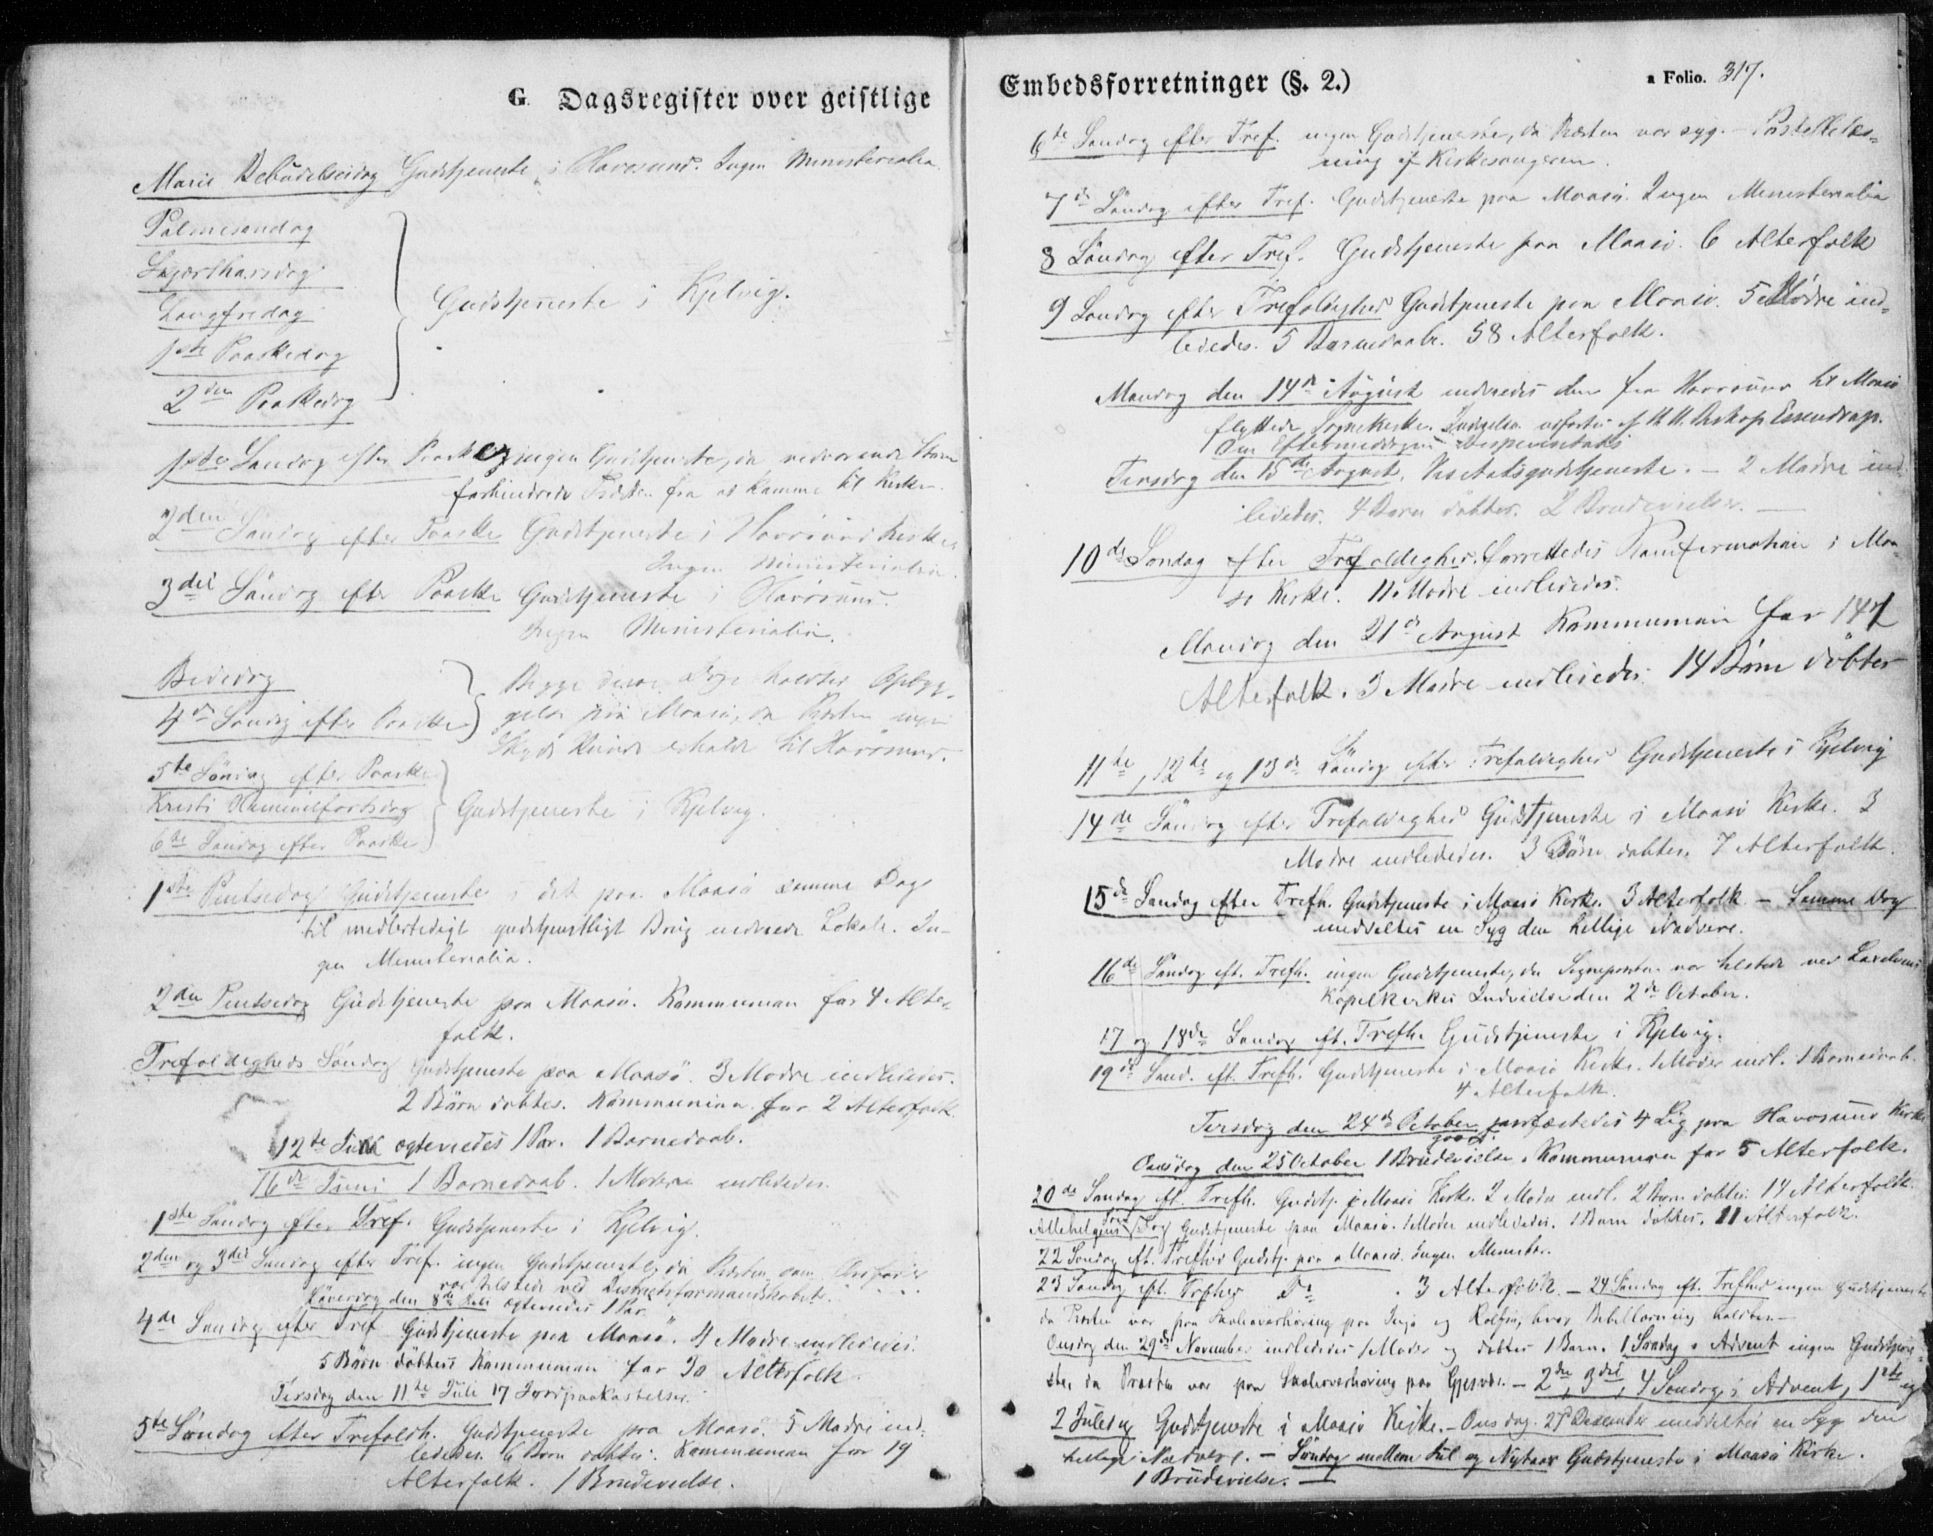 G. Dagsregister over geistlige
Marie Bebudelsesdag Gudstjeneste i Havøsund. Ingen Ministerialia.
Palmesøndag
Skjærthorsdag
Langfredag
1ste Paaskedag
2den Paaskedag
Gudstjeneste i Kjelvig.
1ste Søndag efter Paaske ingen Gudstjeneste, da vedvarende Storm
forhindrede Præsten fra at komme til Kirken.
2den Søndag efter Paaske Gudstjeneste i Havøsund Kirke.
Ingen Ministerialia.
3die Søndag efter Paaske Gudstjeneste i Havøsund.
Ingen Ministerialia.
Bededag
4de Søndag efter Paaske
Begge disse Dage holdtes Opbyg-
gelse paa Maasø, da Præsten ingen
Skyds kunde erholde til Havøsund.
5te Søndag efter Paaske
Kristi Himmelfartsdag
6te Søndag efter Paaske
Gudstjeneste i Kjelvig.
1ste Pintsedag Gudstjeneste i det paa Maasø samme Dag
til midlertidigt gudstjenstligt Brug indviede Lokale. In-
gen Ministerialia.
2den Pintsedag Gudstjeneste paa Maasø. Kommunion for 4 Alter-
folk.
Trefoldigheds Søndag Gudstjeneste paa Maasø. 3 Mødre indlededes.
2 Børn døbtes. Kommunion for 2 Alterfolk.
12te Juni egteviedes 1 Par. 1 Barnedaab.
16de Juni 1 Barnedaab. 1 Moder indlededes.
1ste Søndag efter Tref. Gudstjeneste i Kjelvig.
2den og 3die Søndag efter Tref. ingen Gudstjeneste, da Præsten som
var tilstede ved Distriktsformandskabet.
Løverdag den 8de Juli egteviedes 1 Par.
4de Søndag efter Tref Gudstjeneste paa Maasø. 4 Mødre indlededes.
5 Børn døbtes Kommunion for 30 Alterfolk.
Tirsdag den 11te Juli 17 Jordpaakastelser.
5te Søndag efter Trefoldh. Gudstjeneste paa Maasø. 5 Mødre ind-
lededes. 6 Børn døbtes. Kommunion for 19
Alterfolk. 1 Brudevielse.
Embedsforretninger (§. 2.)
a Folio. 317.
6te Søndag efter Tref. ingen Gudstjeneste, da Præsten var syg. – Postillelæs-
ning af Kirkesangeren.
7de Søndag efter Tref. Gudstjeneste paa Maasø. Ingen Ministerialia
8 Søndag efter Tref. Gudstjeneste paa Maasø. 6 Alterfolk
9 Søndag efter Trefoldighed Gudstjeneste paa Maasø. 5 Mødre ind-
lededes. 5 Barnedaab. 58 Alterfolk.
Mandag den 14de August indviedes den fra Havøsund til Maasø
flyttede Sognekirke. Indvielsen udførtes af H. H. Biskop Essendrop.
Om Eftermiddagen
Tirsdag den 15de August. Visitatsgudstjeneste. – 2 Mødre ind-
lededes. 4 Børn døbtes. 2 Brudevielser. –
10de Søndag efter Trefoldighed. forrettedes Konfirmation i Maa-
sø Kirke. 11 Mødre indlededes.
Mandag den 21de August Kommunion for 147
Alterfolk. 3 Mødre indlededes. 14 Børn døbtes
11te, 12te og 13de Søndag efter Trefoldighed Gudstjeneste i Kjelvig
14de Søndag efter Trefoldighed Gudstjeneste i Maasø Kirke. 3
Mødre indlededes. 3 Børn døbtes. 7 Alterfolk.
15de Søndag efter Trefh. Gudstjeneste i Maasø Kirke. 3 Alterfolk – Samme Dag
meddeltes en Syg den hellige Nadvere.
16de Søndag eft. Trefh. ingen Gudstjeneste, da Sognepresten var tilstede ved Laxelvens
Kapelkirkes Indvielse den 2de October.
17 og 18de Søndag eft. Trefh. Gudstjeneste i Kjelvig.
19de Sønd. eft. Trefh. Gudstjeneste i Maasø Kirke. 1 Moder indl. 1 Barnedaab.
4 Alterfolk.
Tirsdag den 24de October jordfæstedes 4 Lig paa Havøsund Kirke
gaard.
Onsdag den 25 October 1 Brudevielse. Kommunion for 5 Alterfolk.
20de Søndag eft. Trefh. Gudstj. i Maasø Kirke. 2 Mødre indl. 2 Børn døbtes 14 Alterfolk.
Allehelgens Søndag Gudstjeneste paa Maasø. 1 Moder indlededes. 1 Barn døbtes. 11 Alterfolk.
22 Søndag eft. Trefhed Gudstj. paa Maasø. Ingen Minister.
23 Søndag eft. Trefhed Do . 3 Alterfolk. – 24 Søndag eft. Trefhed ingen Gudstjeneste
da Præsten var paa Skoleoverhøring paa Ingø og Rolfsø, hvor Bibellæsning holdtes. –
Onsdag den 29de November indlededes 1 Moder og døbtes 1 Barn. 1 Søndag i Advent ingen Gudstjene-
ste, da Præsten var paa Skoleoverhøring paa Gjesvær. – 2den, 3die, 4 Søndag i Advent, 1ste og
2 Juledag Gudstjeneste i Maasø Kirke. – Onsdag 27 December meddeltes en Syg den
hellige Nadvere. – Søndag mellem Jul og Nytaar Gudstjeneste i Maasø Kirke.
1 Brudevielse. –